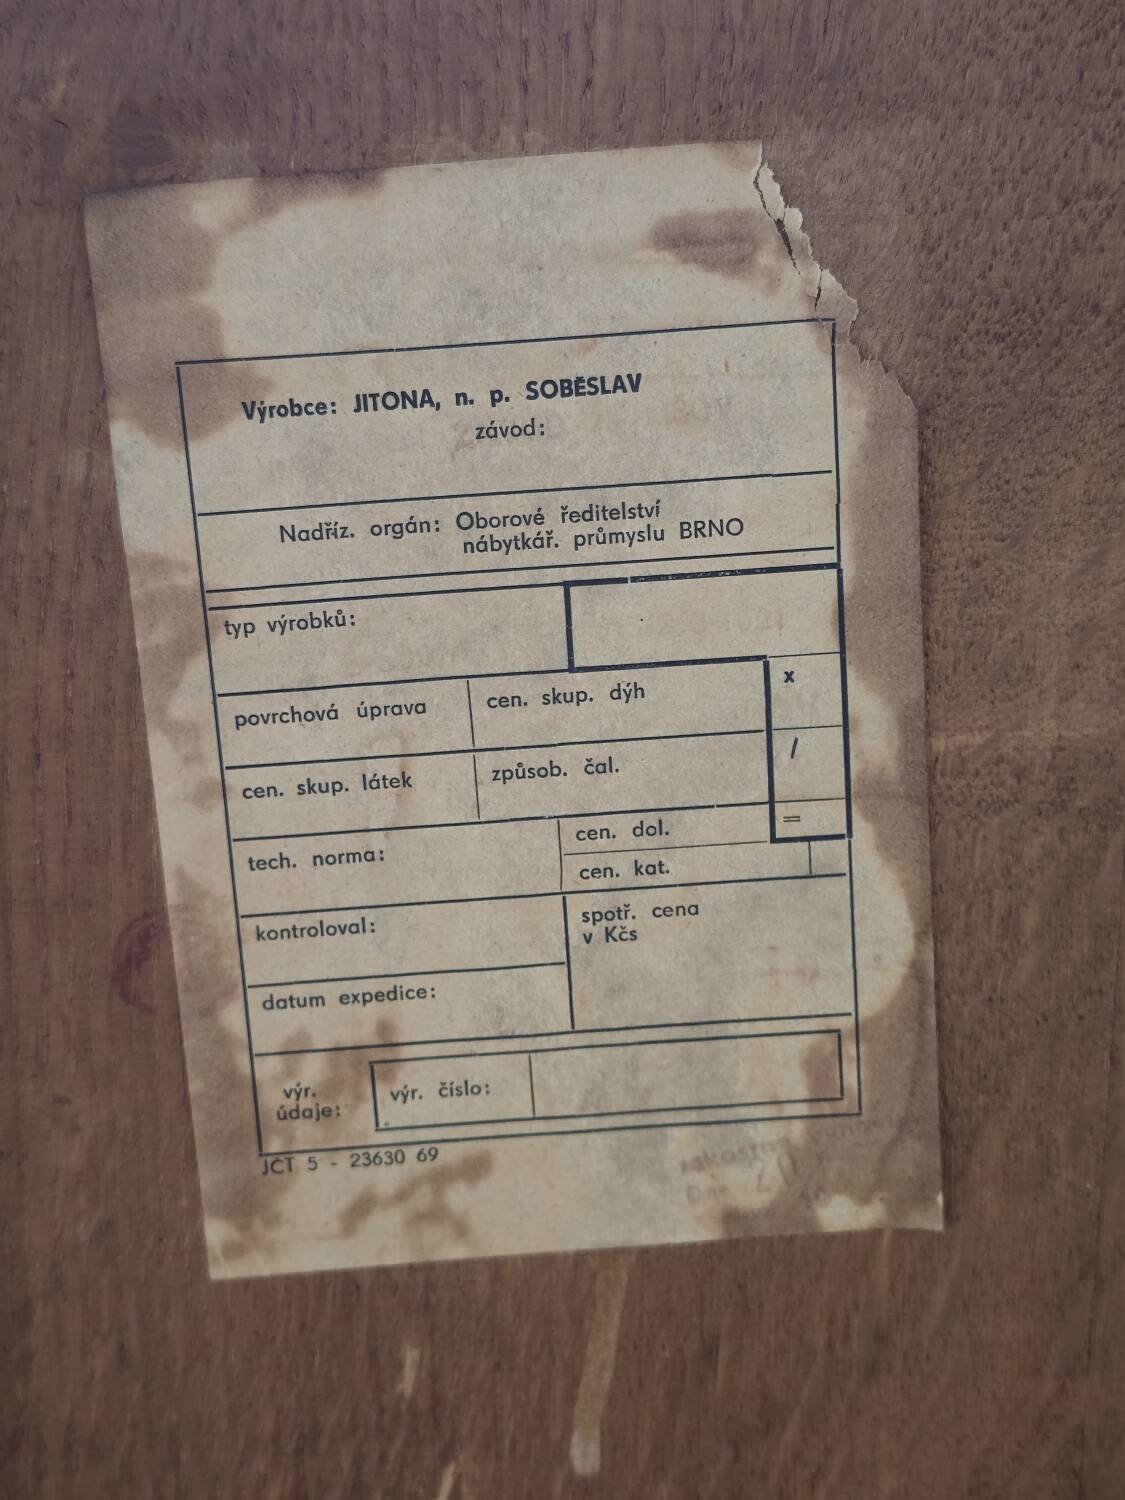 Výrobce: JITONA, n. p. SOBĚSLAV
závod:
Nadříz. orgán: Oborové ředitelství
nábytkář. průmyslu BRNO
typ výrobků:
povrchová úprava
cen. skup. dýh
x
cen. skup. látek
způsob. čal.
/
tech. norma:
cen. dol.
=
cen. kat.
kontroloval:
spotř. cena
v Kčs
datum expedice:
výr.
údaje:
výr. číslo:
JČT 5 - 23630 69